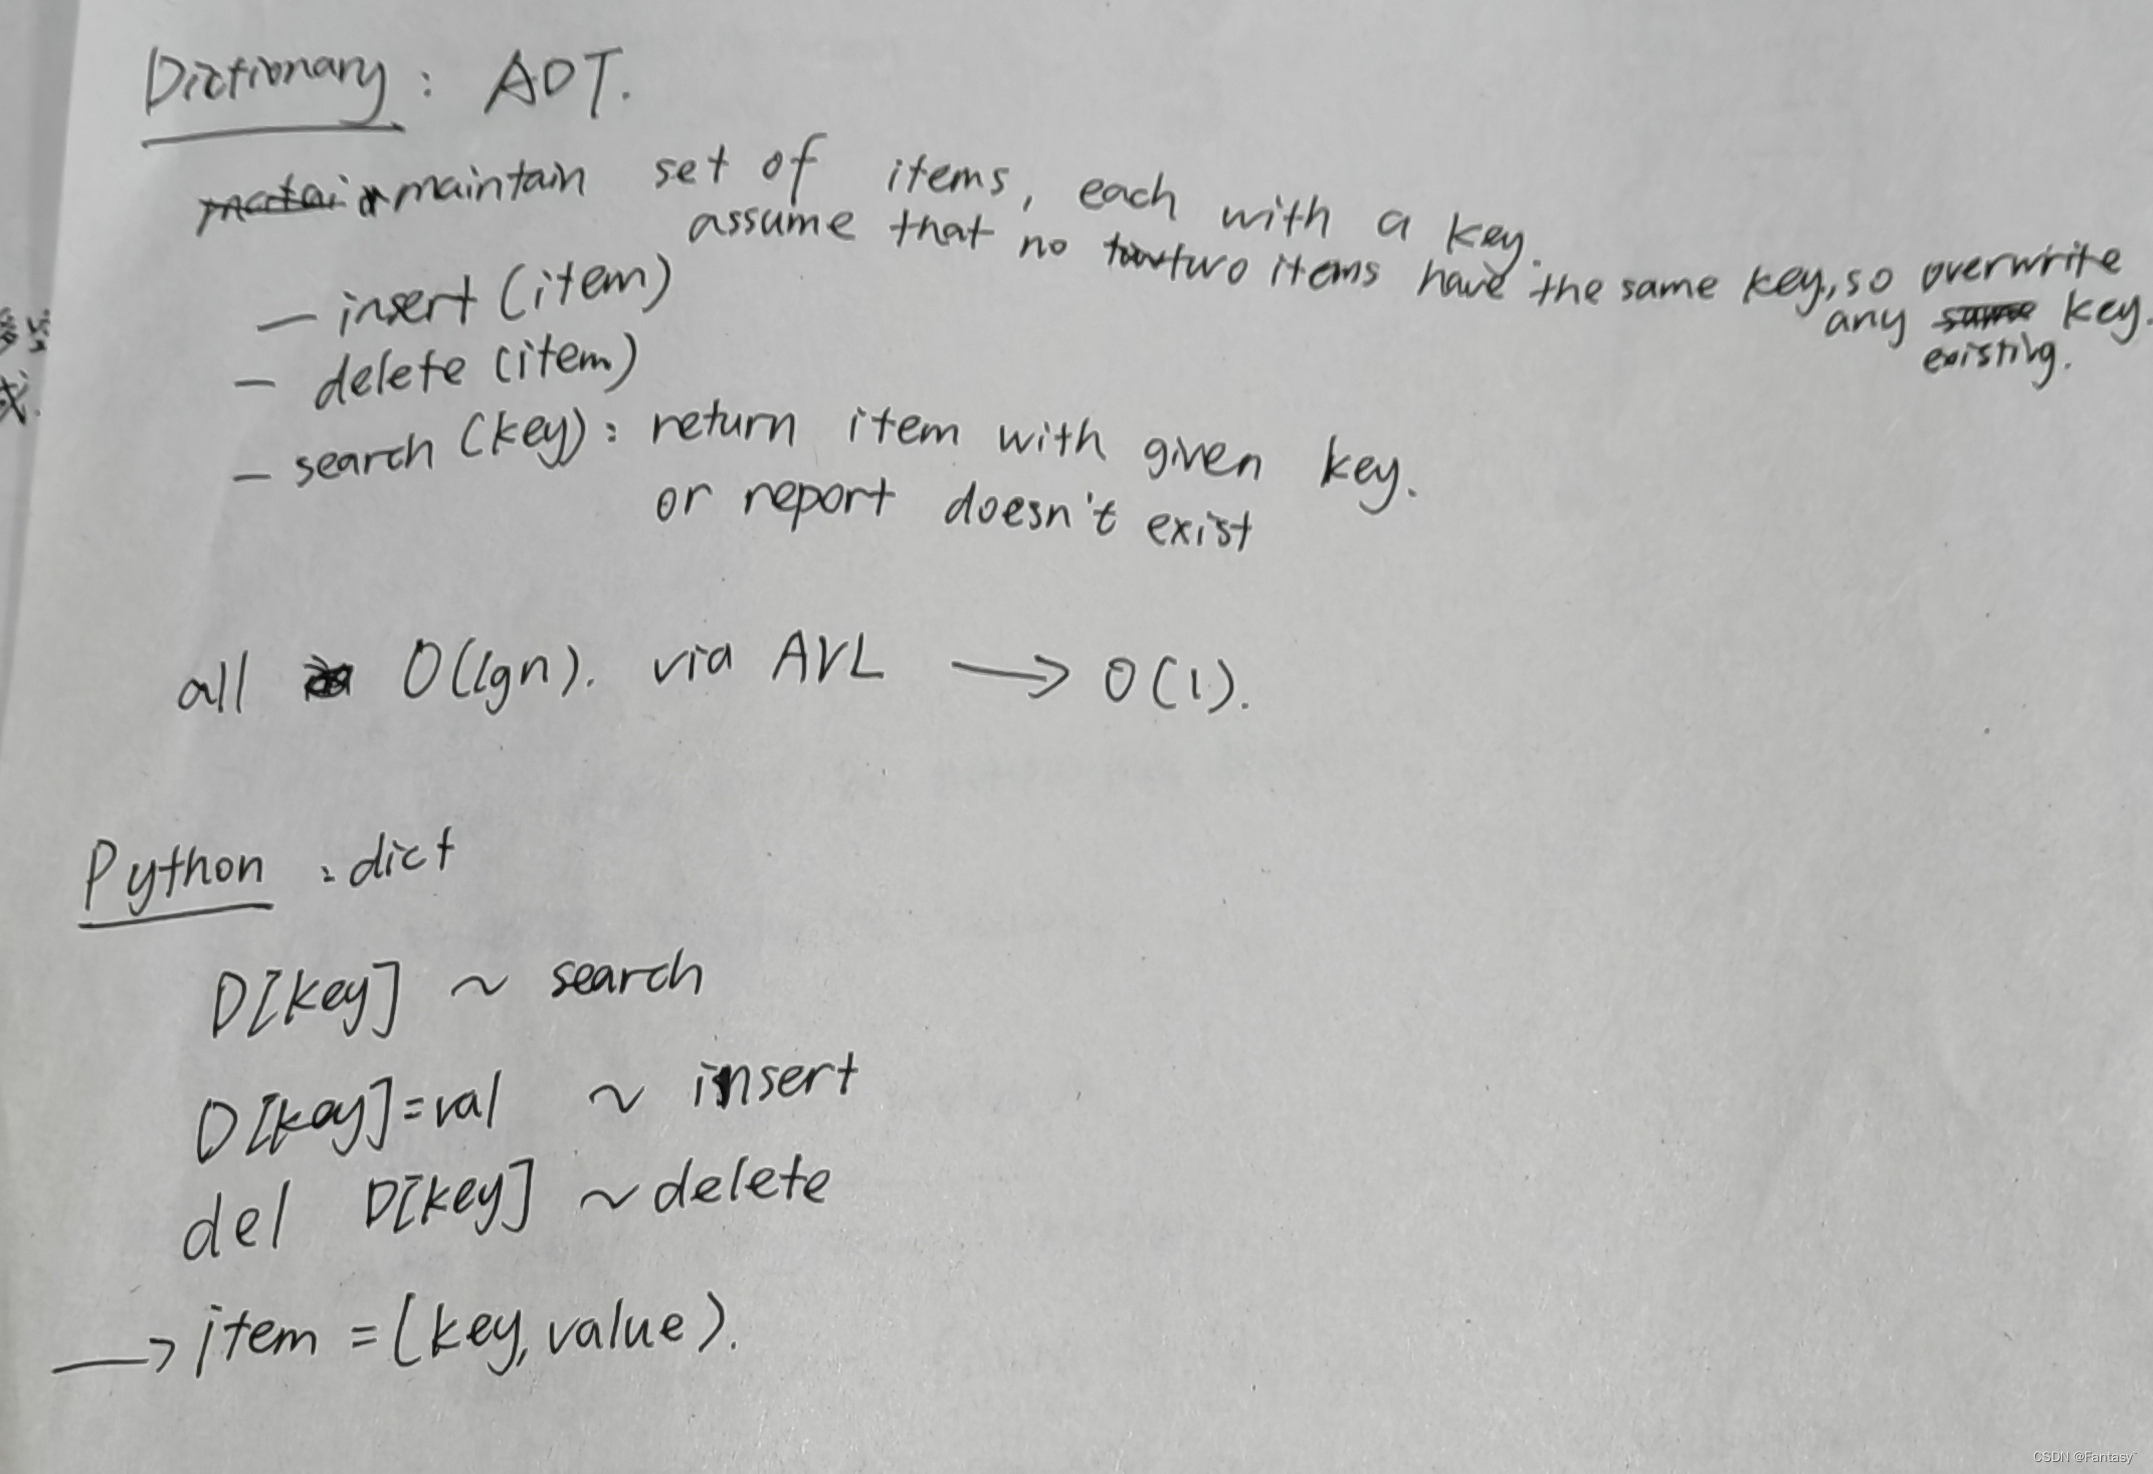 Dictionary: ADT.
maintain set of items, each with a key.
assume that no two items have the same key, so overwrite
any key.
existing.
— insert (item)
— delete (item)
— search (key): return item with given key.
or report doesn't exist
all O(lgn). via AVL → O(1).
Python: dict
D[key] ~ search
D[key]=val ~ insert
del D[key] ~ delete
→ item = (key, value).
CSDN @Fantasy`